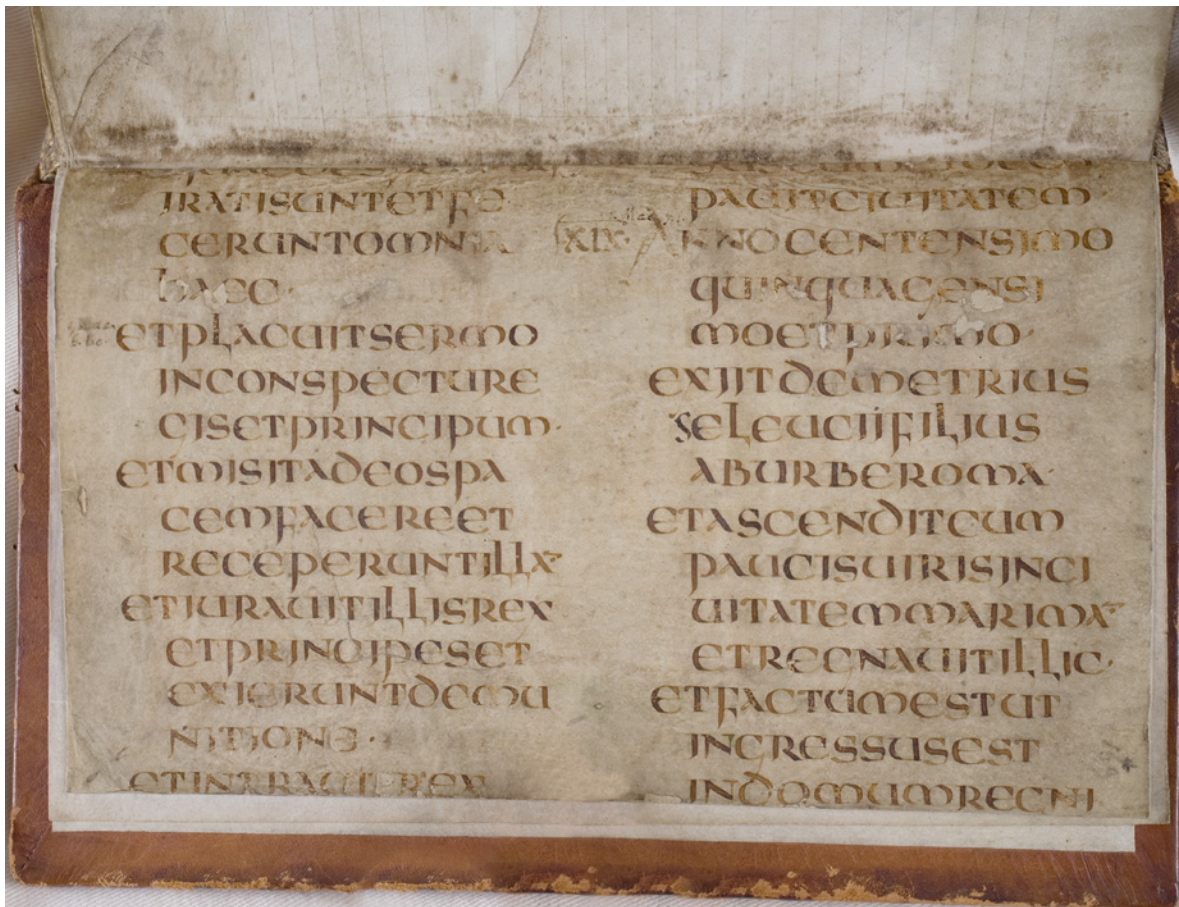 IRATISUNTETFE
CERUNTOMNIA
hAEC·
ETPLACUITSERMO
INCONSPECTURE
GISETPRINCIPUM·
ETMISITADEOSPA
CEMFACEREET
RECEPERUNTILLA·
ETIURAUITILLISREX
ETPRINCIPESET
EXIERUNTDEMU
NITIONE·
ETINTRAUITREX
PAUITCIUITATEM·
XIX· ANNOCENTENSIMO
QUINQUAGENSI
MOETPRIMO·
EXIITDEMETRIUS
SELEUCIIFILIUS
ABURBEROMA·
ETASCENDITCUM
PAUCISUIRISINCI
UITATEMMARIMA·
ETREGNAUITILLIC·
ETFACTUMESTUT
INGRESSUSEST
INDOMUMREGNI